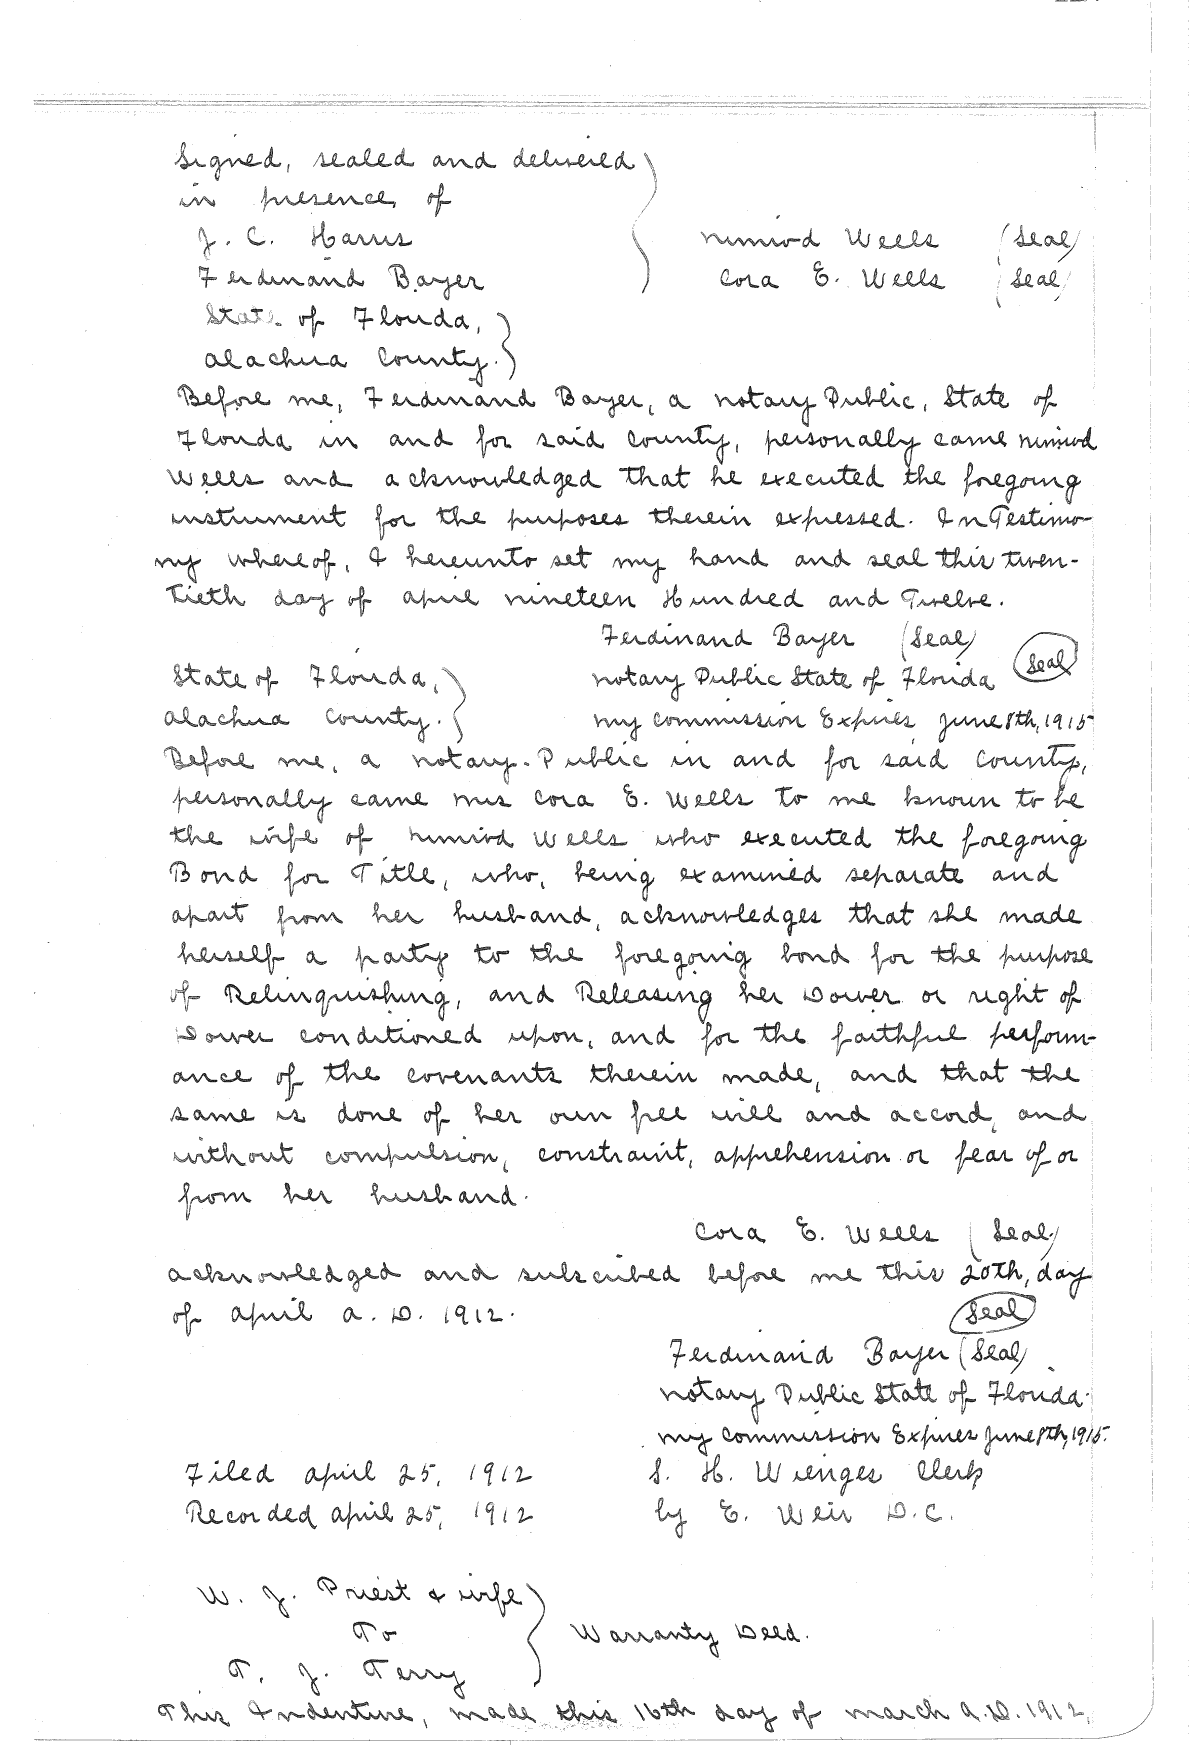 Signed, sealed and delivered
in presence, of
J. C. Harris
Nimrod Wells (Seal)
Ferdinand Bayer
Cora E. Wells (Seal)
State of Florida,
Alachua County.
Before me, Ferdinand Bayer, a notary Public, State of
Florida in and for said County, personally came Nimrod
Wells and acknowledged that he executed the foregoing
instrument for the purposes therein expressed. In Testimo-
ny whereof, I hereunto set my hand and seal this twen-
tieth day of April nineteen Hundred and Twelve.
Ferdinand Bayer (Seal)
State of Florida,
notary Public State of Florida (Seal)
Alachua County.
my commission Expires June 8th, 1915
Before me, a notary-Public in and for said County,
personally came mrs Cora E. Wells to me known to be
the wife of Nimrod Wells who executed the foregoing
Bond for Title, who, being examined separate and
apart from her husband, acknowledges that she made
herself a party to the foregoing bond for the purpose
of Relinquishing, and Releasing her Dower or right of
Dower conditioned upon, and for the faithful perform-
ance of the covenants therein made, and that the
same is done of her own free will and accord, and
without compulsion, constraint, apprehension or fear of or
from her husband.
Cora E. Wells (Seal)
acknowledged and subscribed before me this 20th, day
of April A. D. 1912.
Seal
Ferdinand Bayer (Seal)
notary Public State of Florida.
my Commission Expires June 8th, 1915.
Filed April 25, 1912
S. H. Wienges Clerk
Recorded April 25, 1912
by E. Weir D.C.
W. J. Priest & wife
To
Warranty Deed.
T. J. Terry
This Indenture, made this 16th day of March A.D. 1912,